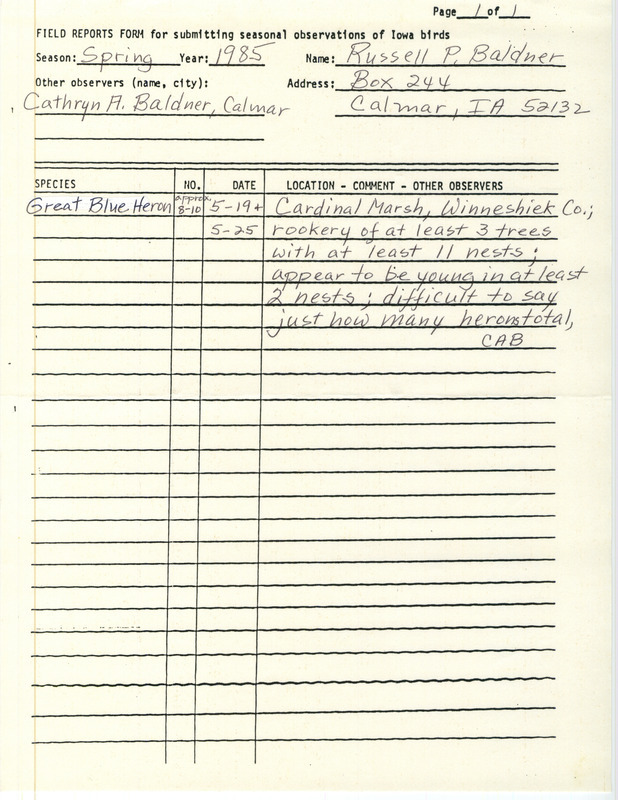 Page 1 of 1
FIELD REPORTS FORM for submitting seasonal observations of Iowa birds
Season: Spring Year: 1985 Name: Russell P. Baldner
Other observers (name, city): Address: Box 244
Cathryn A. Baldner, Calmar Calmar, IA 52132
SPECIES NO. DATE LOCATION - COMMENT - OTHER OBSERVERS
Great Blue Heron approx 8-10 5-19+ Cardinal Marsh, Winneshiek Co.;
5-25 rookery of at least 3 trees
with at least 11 nests;
appear to be young in at least
2 nests; difficult to say
just how many herons total,
CAB